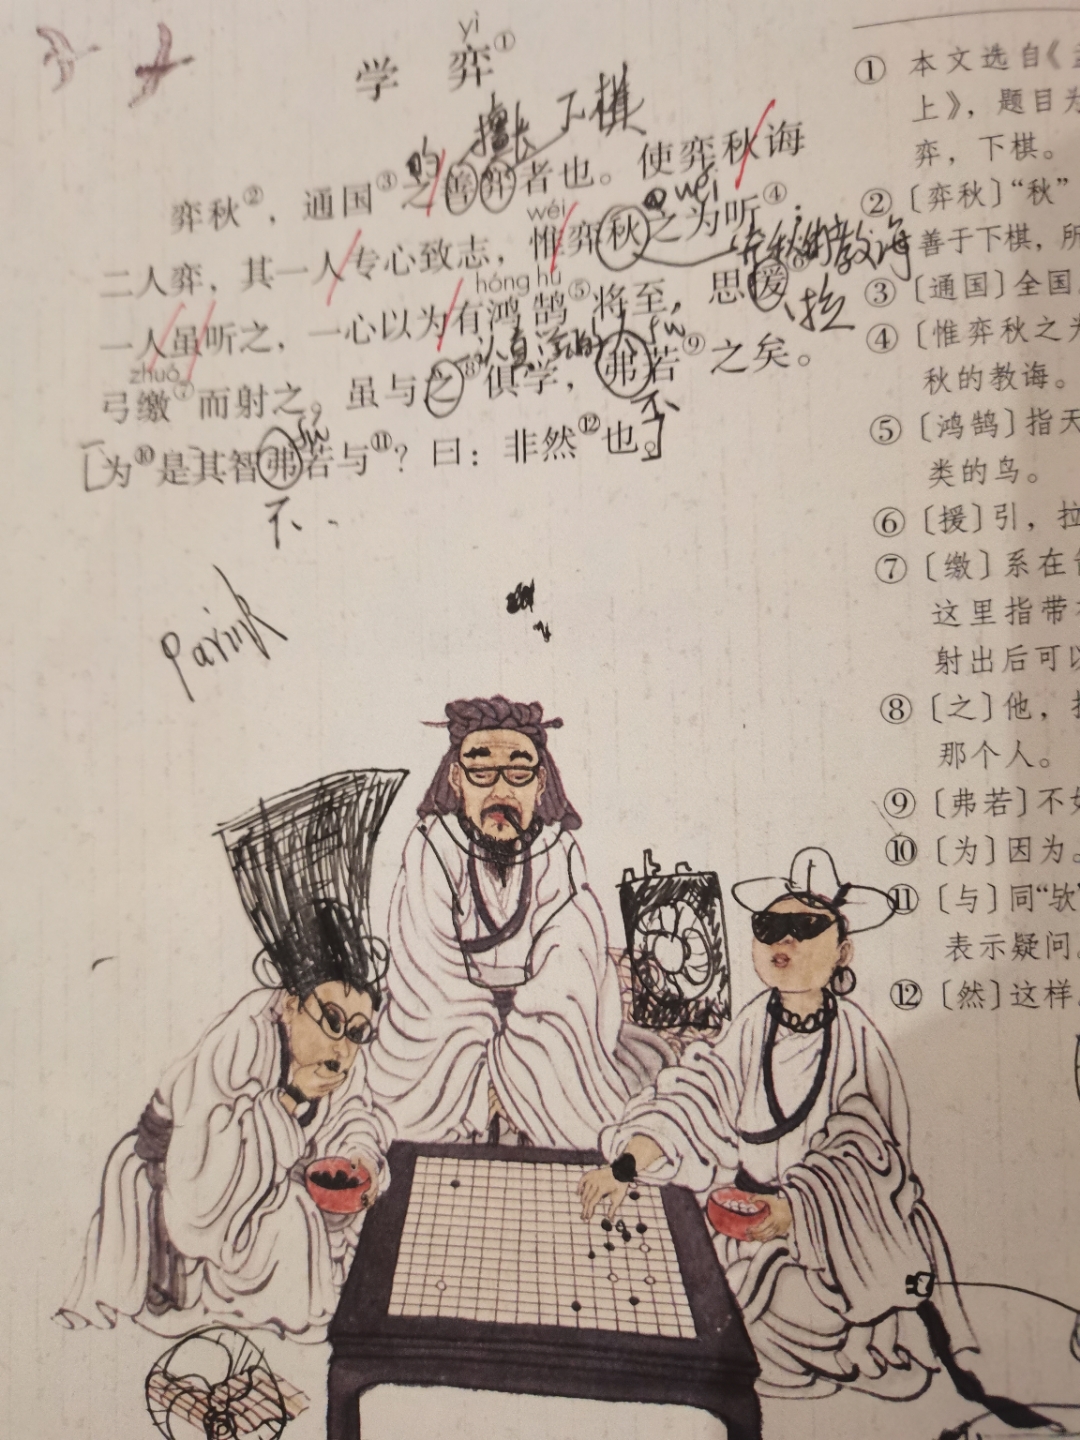 yì
学 弈①
的 擅长 下棋
弈秋②，通国③之善弈者也。使弈秋诲
wéi
二人弈，其一人专心致志，惟弈秋之为听④；
的教诲
hóng hú
一人虽听之，一心以为有鸿鹄⑤将至，思援⑥
拉
zhuó
弓缴⑦而射之。虽与之⑧俱学，弗若⑨之矣。
不
为⑩是其智弗若与⑪？曰：非然⑫也。
不
① 本文选自《
上》，题目为
弈，下棋。
② 〔弈秋〕“秋”
善于下棋，所
③ 〔通国〕全国
④ 〔惟弈秋之为
秋的教诲。
⑤ 〔鸿鹄〕指天
类的鸟。
⑥ 〔援〕引，拉
⑦ 〔缴〕系在
这里指带
射出后可以
⑧ 〔之〕他，
那个人。
⑨ 〔弗若〕不如
⑩ 〔为〕因为。
⑪ 〔与〕同“欤”
表示疑问。
⑫ 〔然〕这样